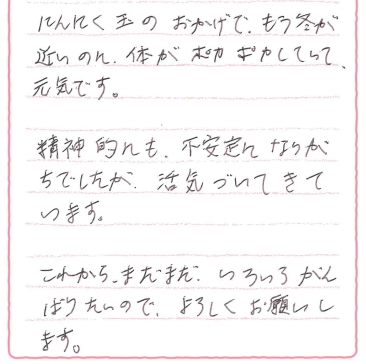 にんにく玉の おかげで、もう冬が
近いのに、体が ポカポカしていて、
元気です。
精神的にも、不安定になりが
ちでしたが、活気づいてきて
います。
これから、まだまだ、いろいろがん
ばりたいので、よろしくお願いし
ます。